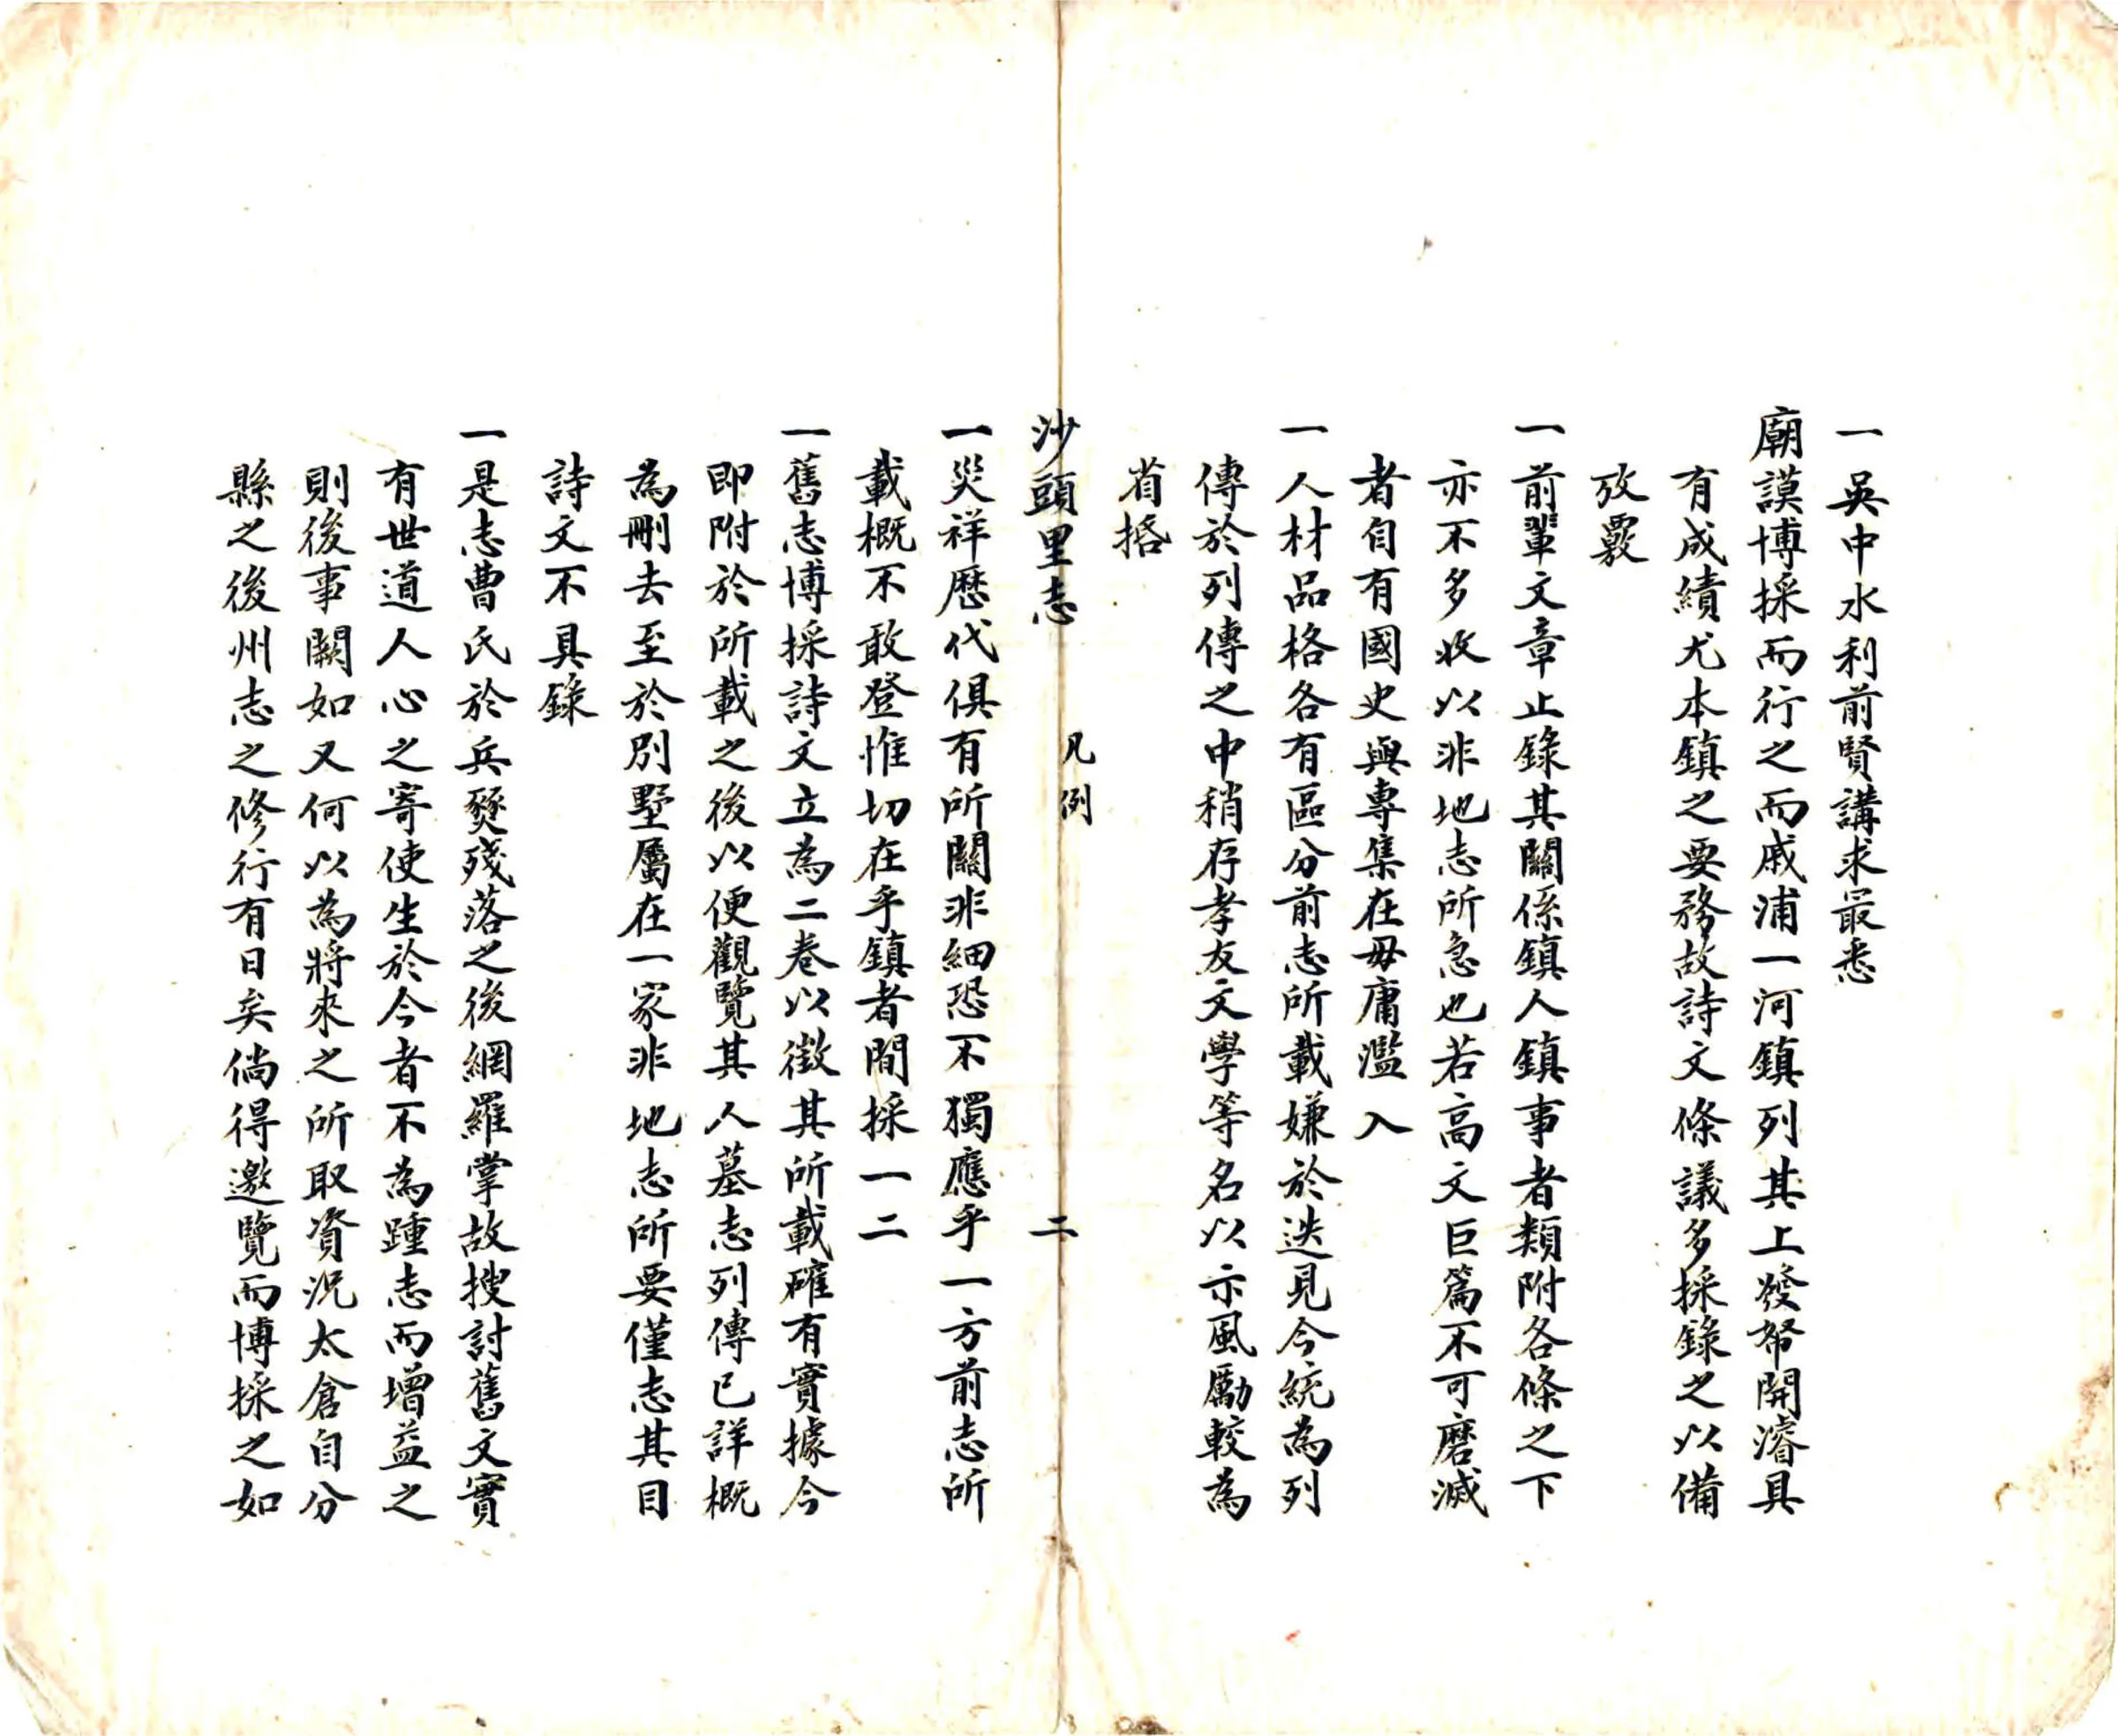 一吳中水利前賢講求最悉
廟謨博採而行之而戚浦一河鎮列其上發帑開濬具
有成績尤本鎮之要務故詩文條議多採錄之以備
攷覈
一前輩文章止錄其關係鎮人鎮事者類附各條之下
亦不多收以非地志所急也若高文巨篇不可磨滅
者自有國史與專集在毋庸濫入
一人材品格各有區分前志所載嫌於迭見今統為列
傳於列傳之中稍存孝友文學等名以示風勵較為
省括
沙頭里志 凡例 二
一災祥歷代俱有所關非細恐不獨應乎一方前志所
載概不敢登惟切在乎鎮者間採一二
一舊志博採詩文立為二卷以徵其所載確有實據今
即附於所載之後以便觀覽其人墓志列傳已詳概
為刪去至於別墅屬在一家非地志所要僅志其目
詩文不具錄
一是志曹氏於兵燹殘落之後網羅掌故搜討舊文實
有世道人心之寄使生於今者不為踵志而增益之
則後事闕如又何以為將來之所取資況太倉自分
縣之後州志之修行有日矣倘得邀覽而博採之如